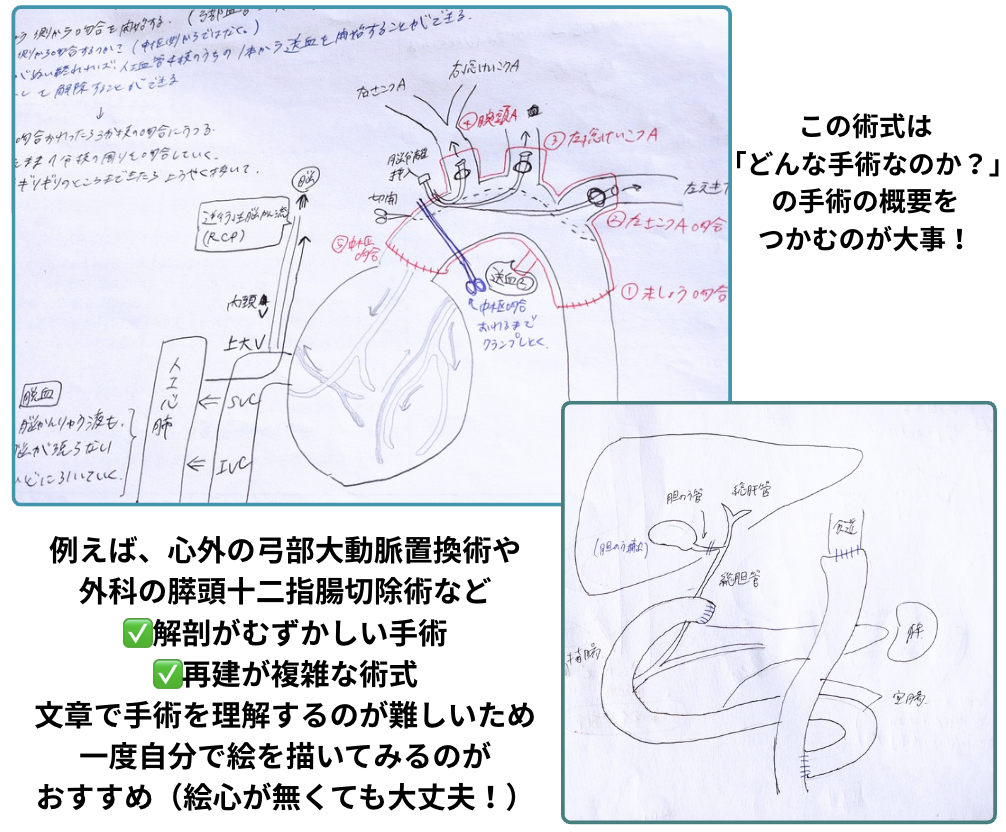 側から吻合を開始する。
側から吻合するのかて（中枢側からではなく。）
ぬい終われば、人工血管4枝のうちの1本から送血を開始することができる。
して解除することができる
↓
吻合がおわったら3分枝の吻合にうつる。
の周りを吻合していく。
ギリギリのところまできたら
この術式は
「どんな手術なのか？」
の手術の概要を
つかむのが大事！
右さこつA
右総けいこつA
④腕頭A
③左総けいこつA
挿入
切開
脳
(RCP)
②左さこつA吻合
⑤中枢吻合
送血②
①末しょう吻合
中枢吻合
おわるまで
クランプしとく。
内頚
V
上大V
人工心肺
SVC
IVC
脱血
脳かんりゅう液も、
脳が張らない
ように引いていく。
例えば、心外の弓部大動脈置換術や
外科の膵頭十二指腸切除術など
✅解剖がむずかしい手術
✅再建が複雑な術式
文章で手術を理解するのが難しいため
一度自分で絵を描いてみるのが
おすすめ（絵心が無くても大丈夫！）
胆のう管
総肝管
(胆のう摘出)
総胆管
食道
指腸
空腸